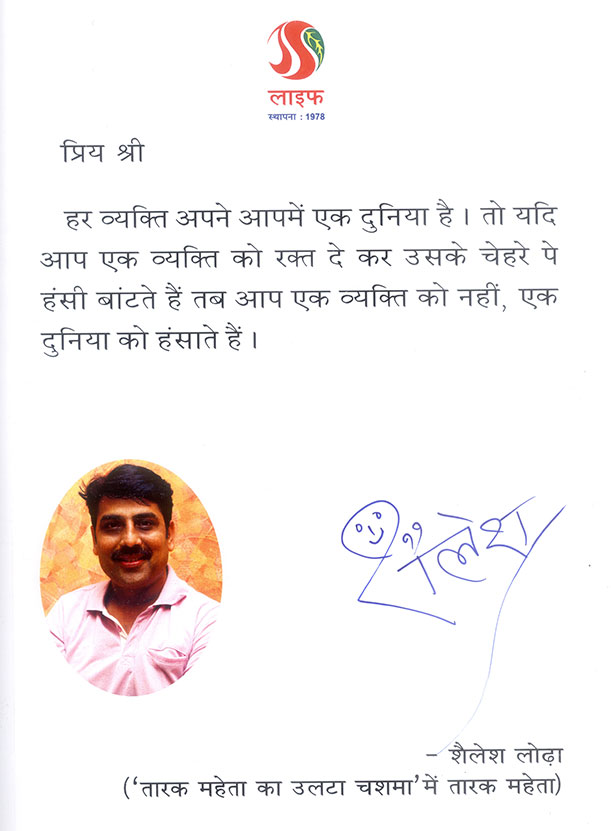 लाइफ
स्थापना : 1978
प्रिय श्री
हर व्यक्ति अपने आपमें एक दुनिया है । तो यदि
आप एक व्यक्ति को रक्त दे कर उसके चेहरे पे
हंसी बांटते हैं तब आप एक व्यक्ति को नहीं, एक
दुनिया को हंसाते हैं ।
शैलेश
– शैलेश लोढ़ा
(‘तारक महेता का उलटा चशमा’ में तारक महेता)